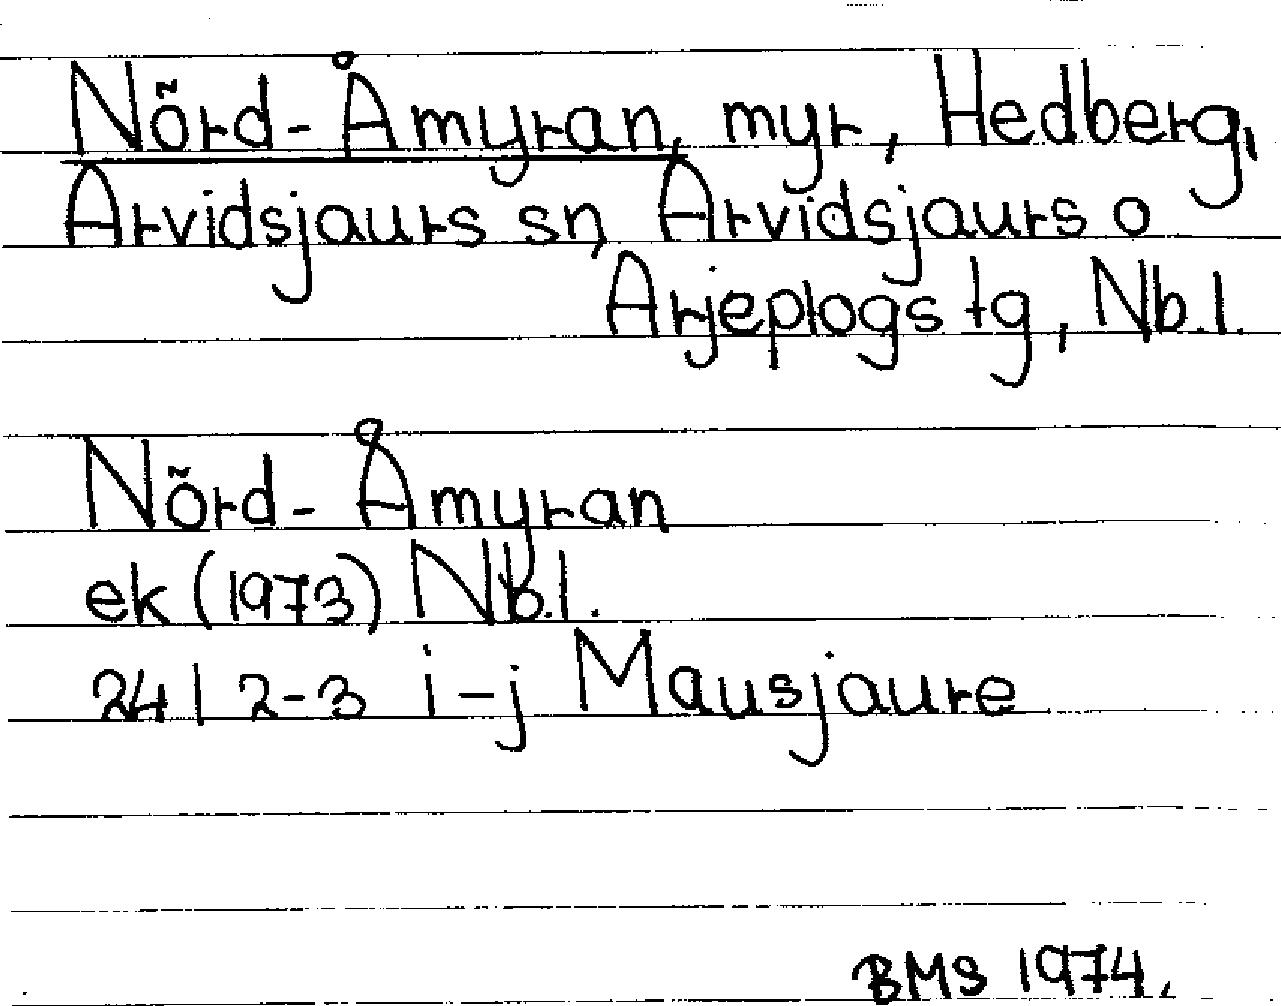 Nõrd-Åmyran, myr, Hedberg,
Arvidsjaurs sn, Arvidsjaurs o
Arjeplogs tg, Nb.l.
Nõrd-Åmyran
ek (1973) Nb.l.
24 I 2-3 i-j Mausjaure
BMS 1974.